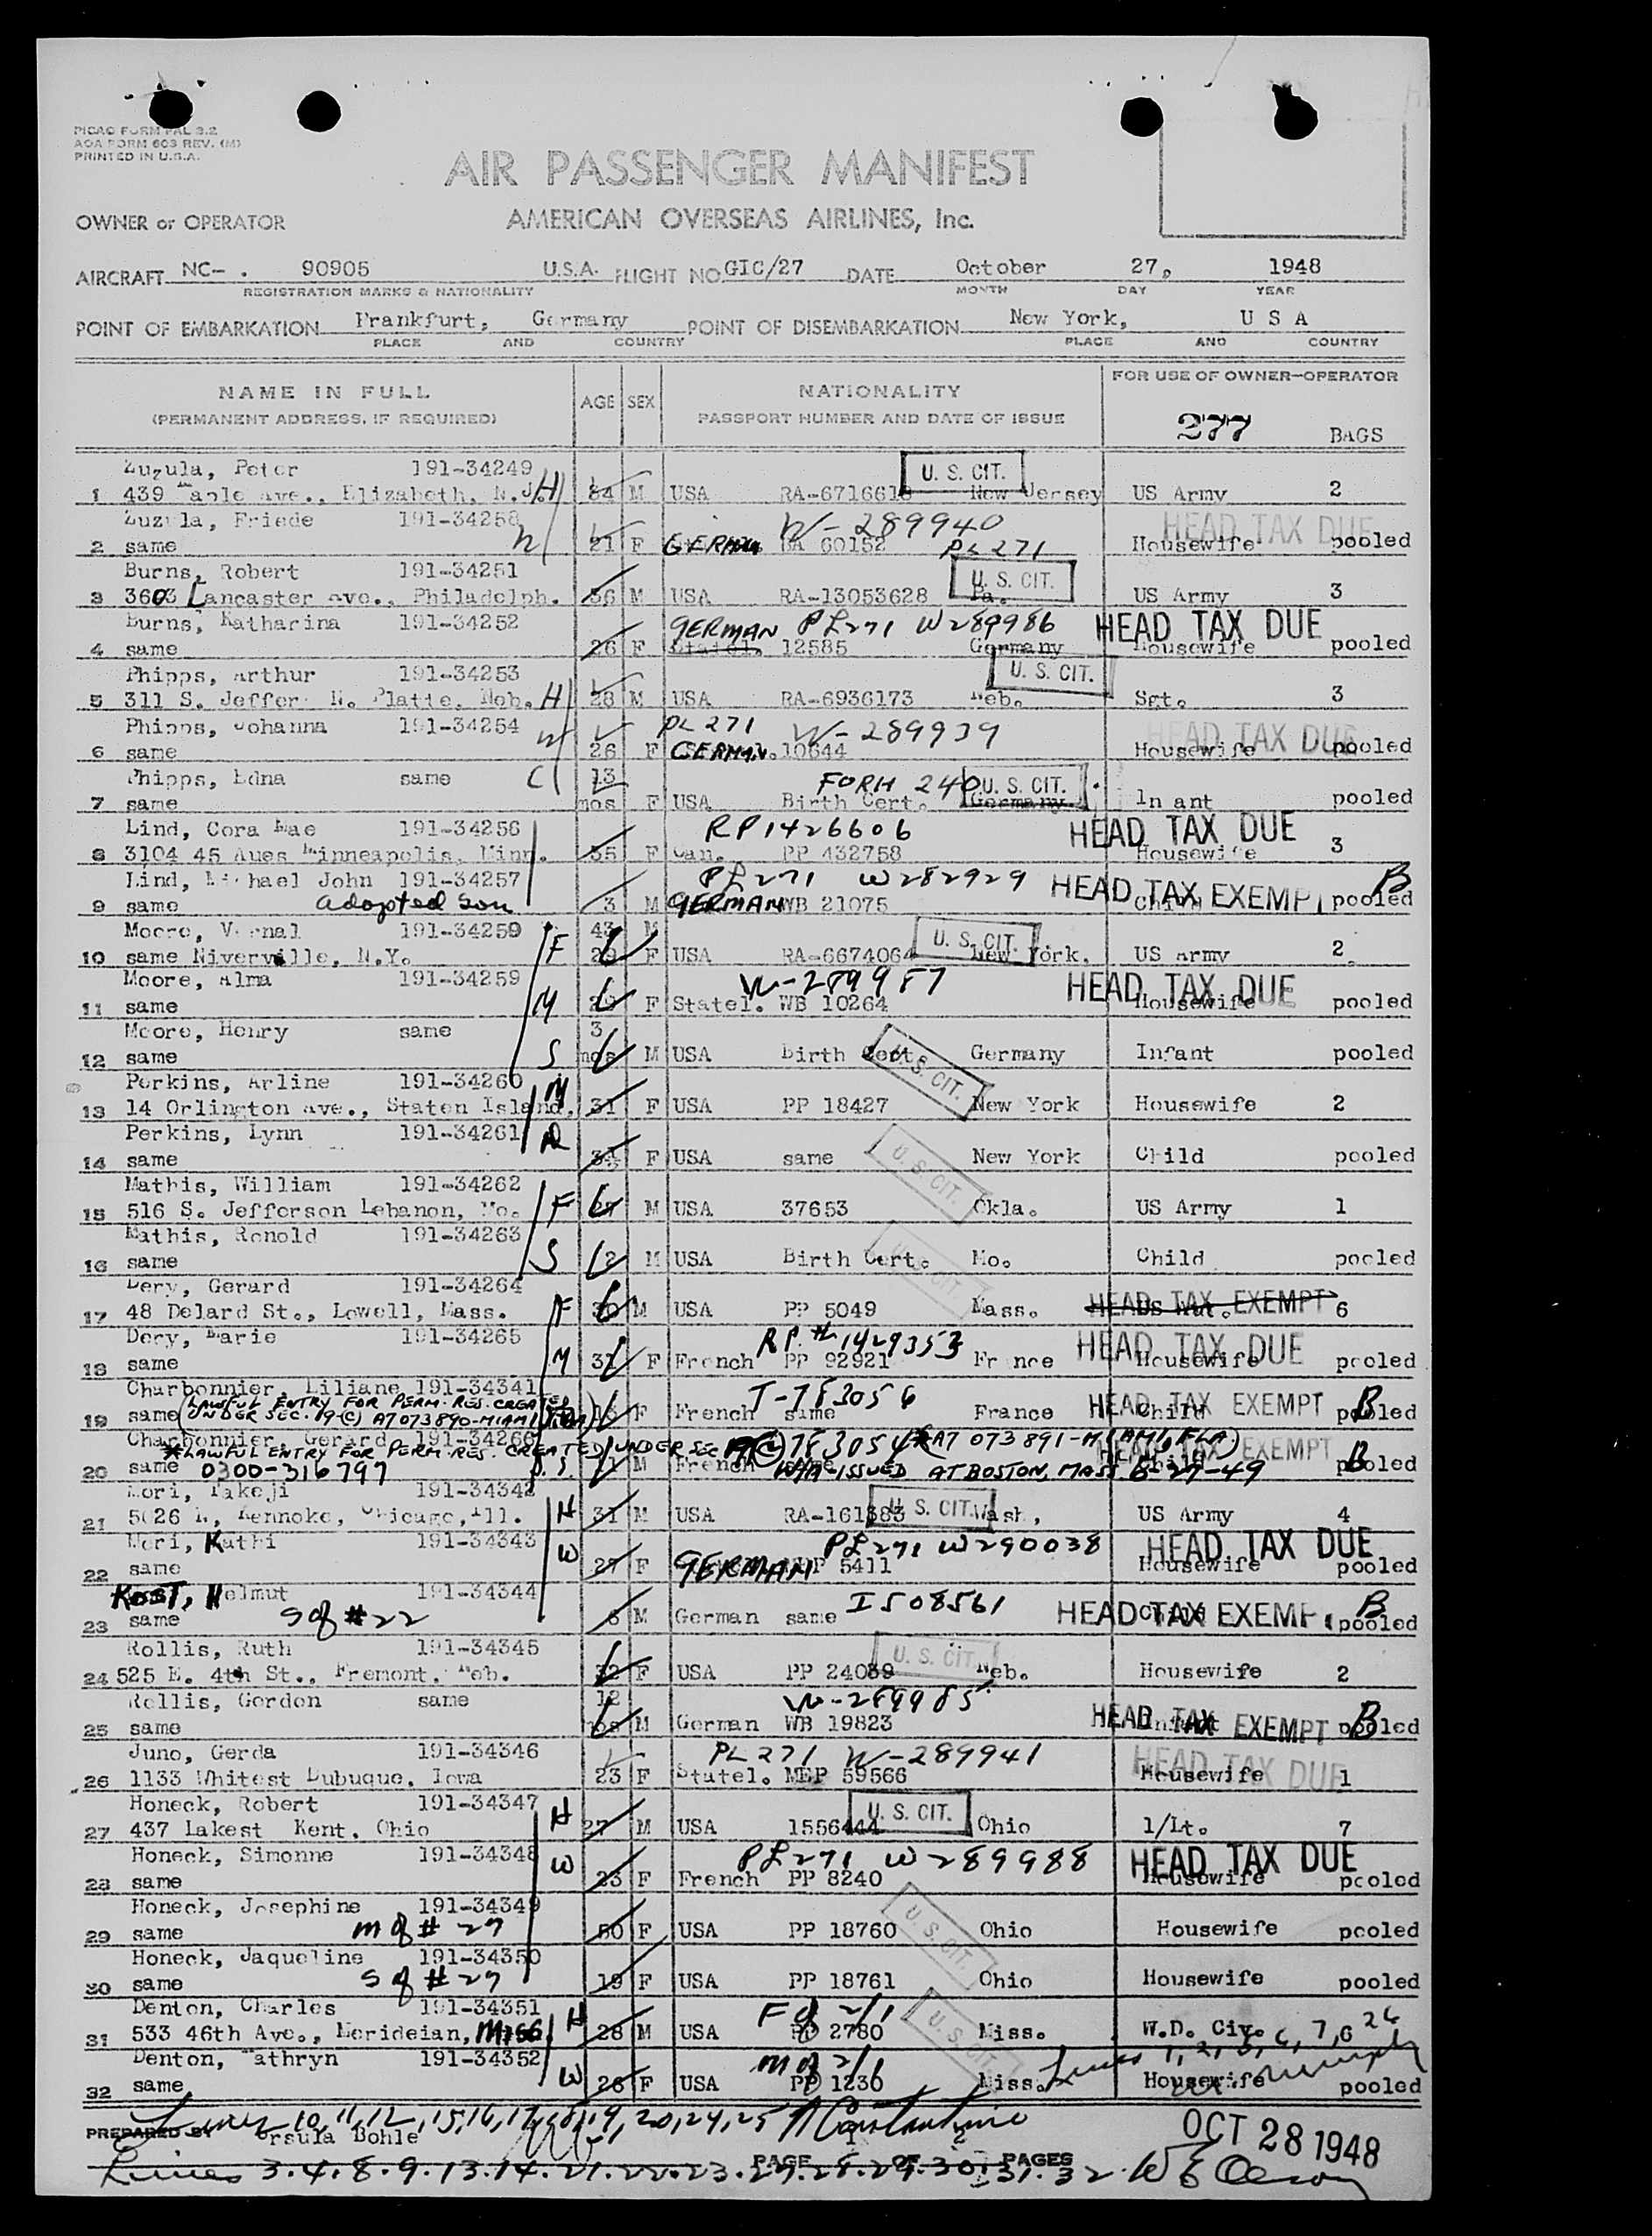 PICAO FORM PAL 3.2
AOA FORM 603 REV. (M)
PRINTED IN U.S.A.
AIR PASSENGER MANIFEST
OWNER or OPERATOR AMERICAN OVERSEAS AIRLINES, Inc.
AIRCRAFT NC- . 90905 U.S.A. FLIGHT NO. GIC/27 DATE October 27, 1948
REGISTRATION MARKS & NATIONALITY MONTH DAY YEAR
POINT OF EMBARKATION Frankfurt, Germany POINT OF DISEMBARKATION New York, U S A
PLACE AND COUNTRY PLACE AND COUNTRY
NAME IN FULL AGE SEX NATIONALITY FOR USE OF OWNER-OPERATOR
(PERMANENT ADDRESS, IF REQUIRED) PASSPORT NUMBER AND DATE OF ISSUE 277 BAGS
Zuzula, Peter 191-34249 U. S. CIT.
1 439 Maple Ave., Elizabeth, N.J. H M USA New Jersey US Army 2
Zuzula, Friede 191-34258 W-289940 HEAD TAX DUE
2 same W 21 F GERMAN 60152 PL 271 Housewife pooled
Burns, Robert 191-34251 U. S. CIT.
3 3603 Lancaster Ave., Philadelph. 36 M USA RA-13053628 Pa. US Army 3
Burns, Katharina 191-34252 GERMAN PL271 W289986 HEAD TAX DUE
4 same 26 F Statel. 12585 Germany Housewife pooled
Phipps, Arthur 191-34253 U. S. CIT.
5 311 S. Jeffer N. Platte, Neb. H 28 M USA RA-6936173 Neb. Sgt. 3
Phipps, Johanna 191-34254 W PL 271 W-289939 HEAD TAX DUE
6 same 26 F GERMAN 10644 Housewife pooled
Phipps, Edna same C 13 FORM 240 U. S. CIT.
7 same mos F USA Birth Cert. Germany Infant pooled
Lind, Cora Mae 191-34256 RP1426606 HEAD TAX DUE
8 3104 45 Aues Minneapolis, Minn. 35 F Can. PP 432758 Housewife 3
Lind, Michael John 191-34257 PL271 W282929 HEAD TAX EXEMPT B
9 same Adopted Son 3 M GERMAN WB 21075 Child pooled
Moore, Vernal 191-34259 F 43 M U. S. CIT.
10 same Niverville, N.Y. 29 F USA RA-6674064 New York, US Army 2
Moore, Alma 191-34259 W-289987 HEAD TAX DUE
11 same M 29 F Statel. WB 10264 Housewife pooled
Moore, Henry same 3
12 same S mos M USA Birth Cert. U. S. CIT. Germany Infant pooled
Perkins, Arline 191-34260 M
13 14 Orlington Ave., Staten Island, 31 F USA PP 18427 New York Housewife 2
Perkins, Lynn 191-34261 D
14 same F USA same U. S. CIT. New York Child pooled
Mathis, William 191-34262
15 516 S. Jefferson Lebanon, Mo. F 27 M USA 37653 Okla. US Army 1
Mathis, Ronold 191-34263
16 same S 2 M USA Birth Cert. U. S. CIT. Mo. Child pooled
Dery, Gerard 191-34264
17 48 Delard St., Lowell, Mass. F 30 M USA PP 5049 Mass. HEAD TAX EXEMPT 6
Dery, Marie 191-34265 RP.# 1429353 HEAD TAX DUE
18 same M 31 F French PP 92921 France Housewife pooled
Charbonnier, Liliane 191-34341 T-783056 HEAD TAX EXEMPT B
(LAWFUL ENTRY FOR PERM. RES. CREATED
19 same UNDER SEC. 19(C) A7073890-MIAMI, FLA) F French same France Child pooled
Charbonnier, Gerard 191-34266 783054 HEAD TAX EXEMPT B
*LAWFUL ENTRY FOR PERM. RES. CREATED UNDER SEC 19(C) *A7 073 891-MIAMI, FLA)
20 same 0300-316797 S. M French same ISSUED AT BOSTON, MASS. 8-29-49 Child pooled
Mori, Takeji 191-34342 U. S. CIT.
21 5026 N, Kennoke, Chicago, Ill. H 31 M USA RA-161383 Wash, US Army 4
Mori, Kathi 191-34343 W PL271 W290038 HEAD TAX DUE
22 same 27 F GERMAN 5411 Housewife pooled
KOST, Helmut 191-34344 I508561 HEAD TAX EXEMPT B
23 same S of #22 6 M German same Child pooled
Rollis, Ruth 191-34345 U. S. CIT.
24 525 E. 4th St., Fremont, Neb. 32 F USA PP 24039 Neb. Housewife 2
Rollis, Gordon same 12 W-289985 HEAD TAX EXEMPT B
25 same mos M German WB 19823 Infant pooled
Juno, Gerda 191-34346 PL271 W-289941 HEAD TAX DUE
26 1133 Whitest Dubuque, Iowa 23 F Statel. MEP 59566 Housewife 1
Honeck, Robert 191-34347 H U. S. CIT.
27 437 Lakest Kent, Ohio 27 M USA 1556444 Ohio 1/Lt. 7
Honeck, Simonne 191-34348 W PL271 W289988 HEAD TAX DUE
28 same 23 F French PP 8240 Housewife pooled
Honeck, Josephine 191-34349
29 same M of # 27 50 F USA PP 18760 U. S. CIT. Ohio Housewife pooled
Honeck, Jaqueline 191-34350
30 same S of # 27 19 F USA PP 18761 Ohio Housewife pooled
Denton, Charles 191-34351 H F of 2/1
31 533 46th Ave., Merideian, Miss. 28 M USA PP 2780 U. S. CIT. Miss. W.D. Civ.
Denton, Kathryn 191-34352 W M of 2/1 Lines 1, 2, 5, 6, 7, 26
32 same 26 F USA PP 1230 Miss. Housewife pooled
Lines 10, 11, 12, 15, 16, 17, 18, 19, 20, 24, 25
PREPARED BY Ursula Bohle OCT 28 1948
PAGE 1 OF 2 PAGES
Lines 3.4.8.9.13.14.21.22.23.27.28.29.30.31.32. W E Olson